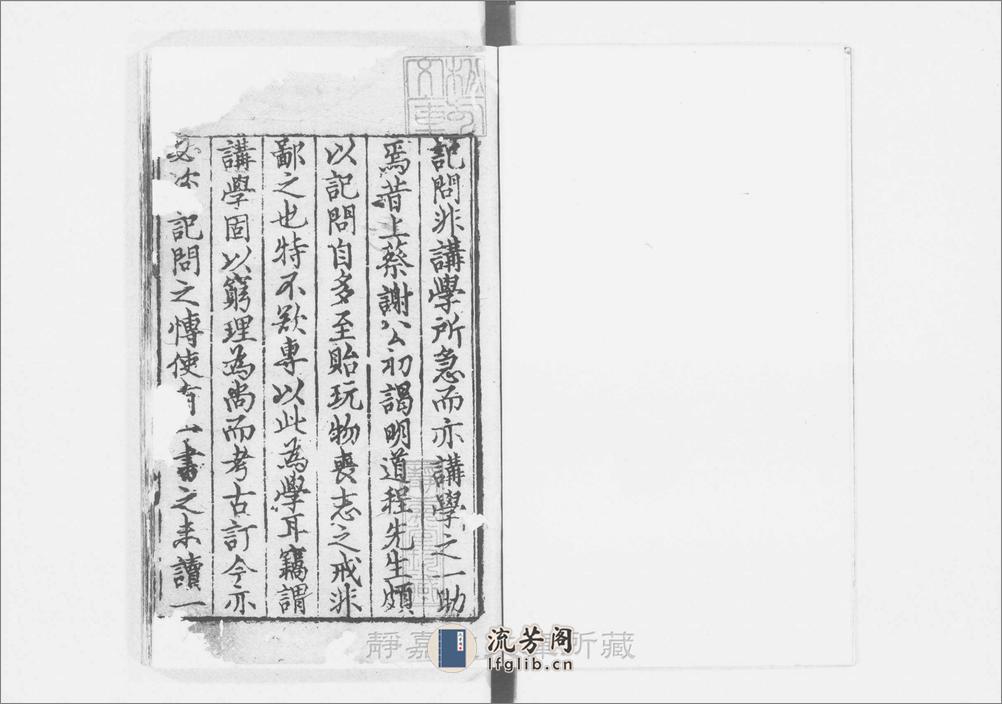 記問非講學所急而亦講學之一助
焉昔上蔡謝公初謁明道程先生頗
以記問自多至貽玩物喪志之戒非
鄙之也特不欲專以此為學耳竊謂
講學固以窮理為尚而考古訂今亦
必 記問之愽使有一書之未讀一
靜嘉 所藏
流芳阁
lfglib.cn